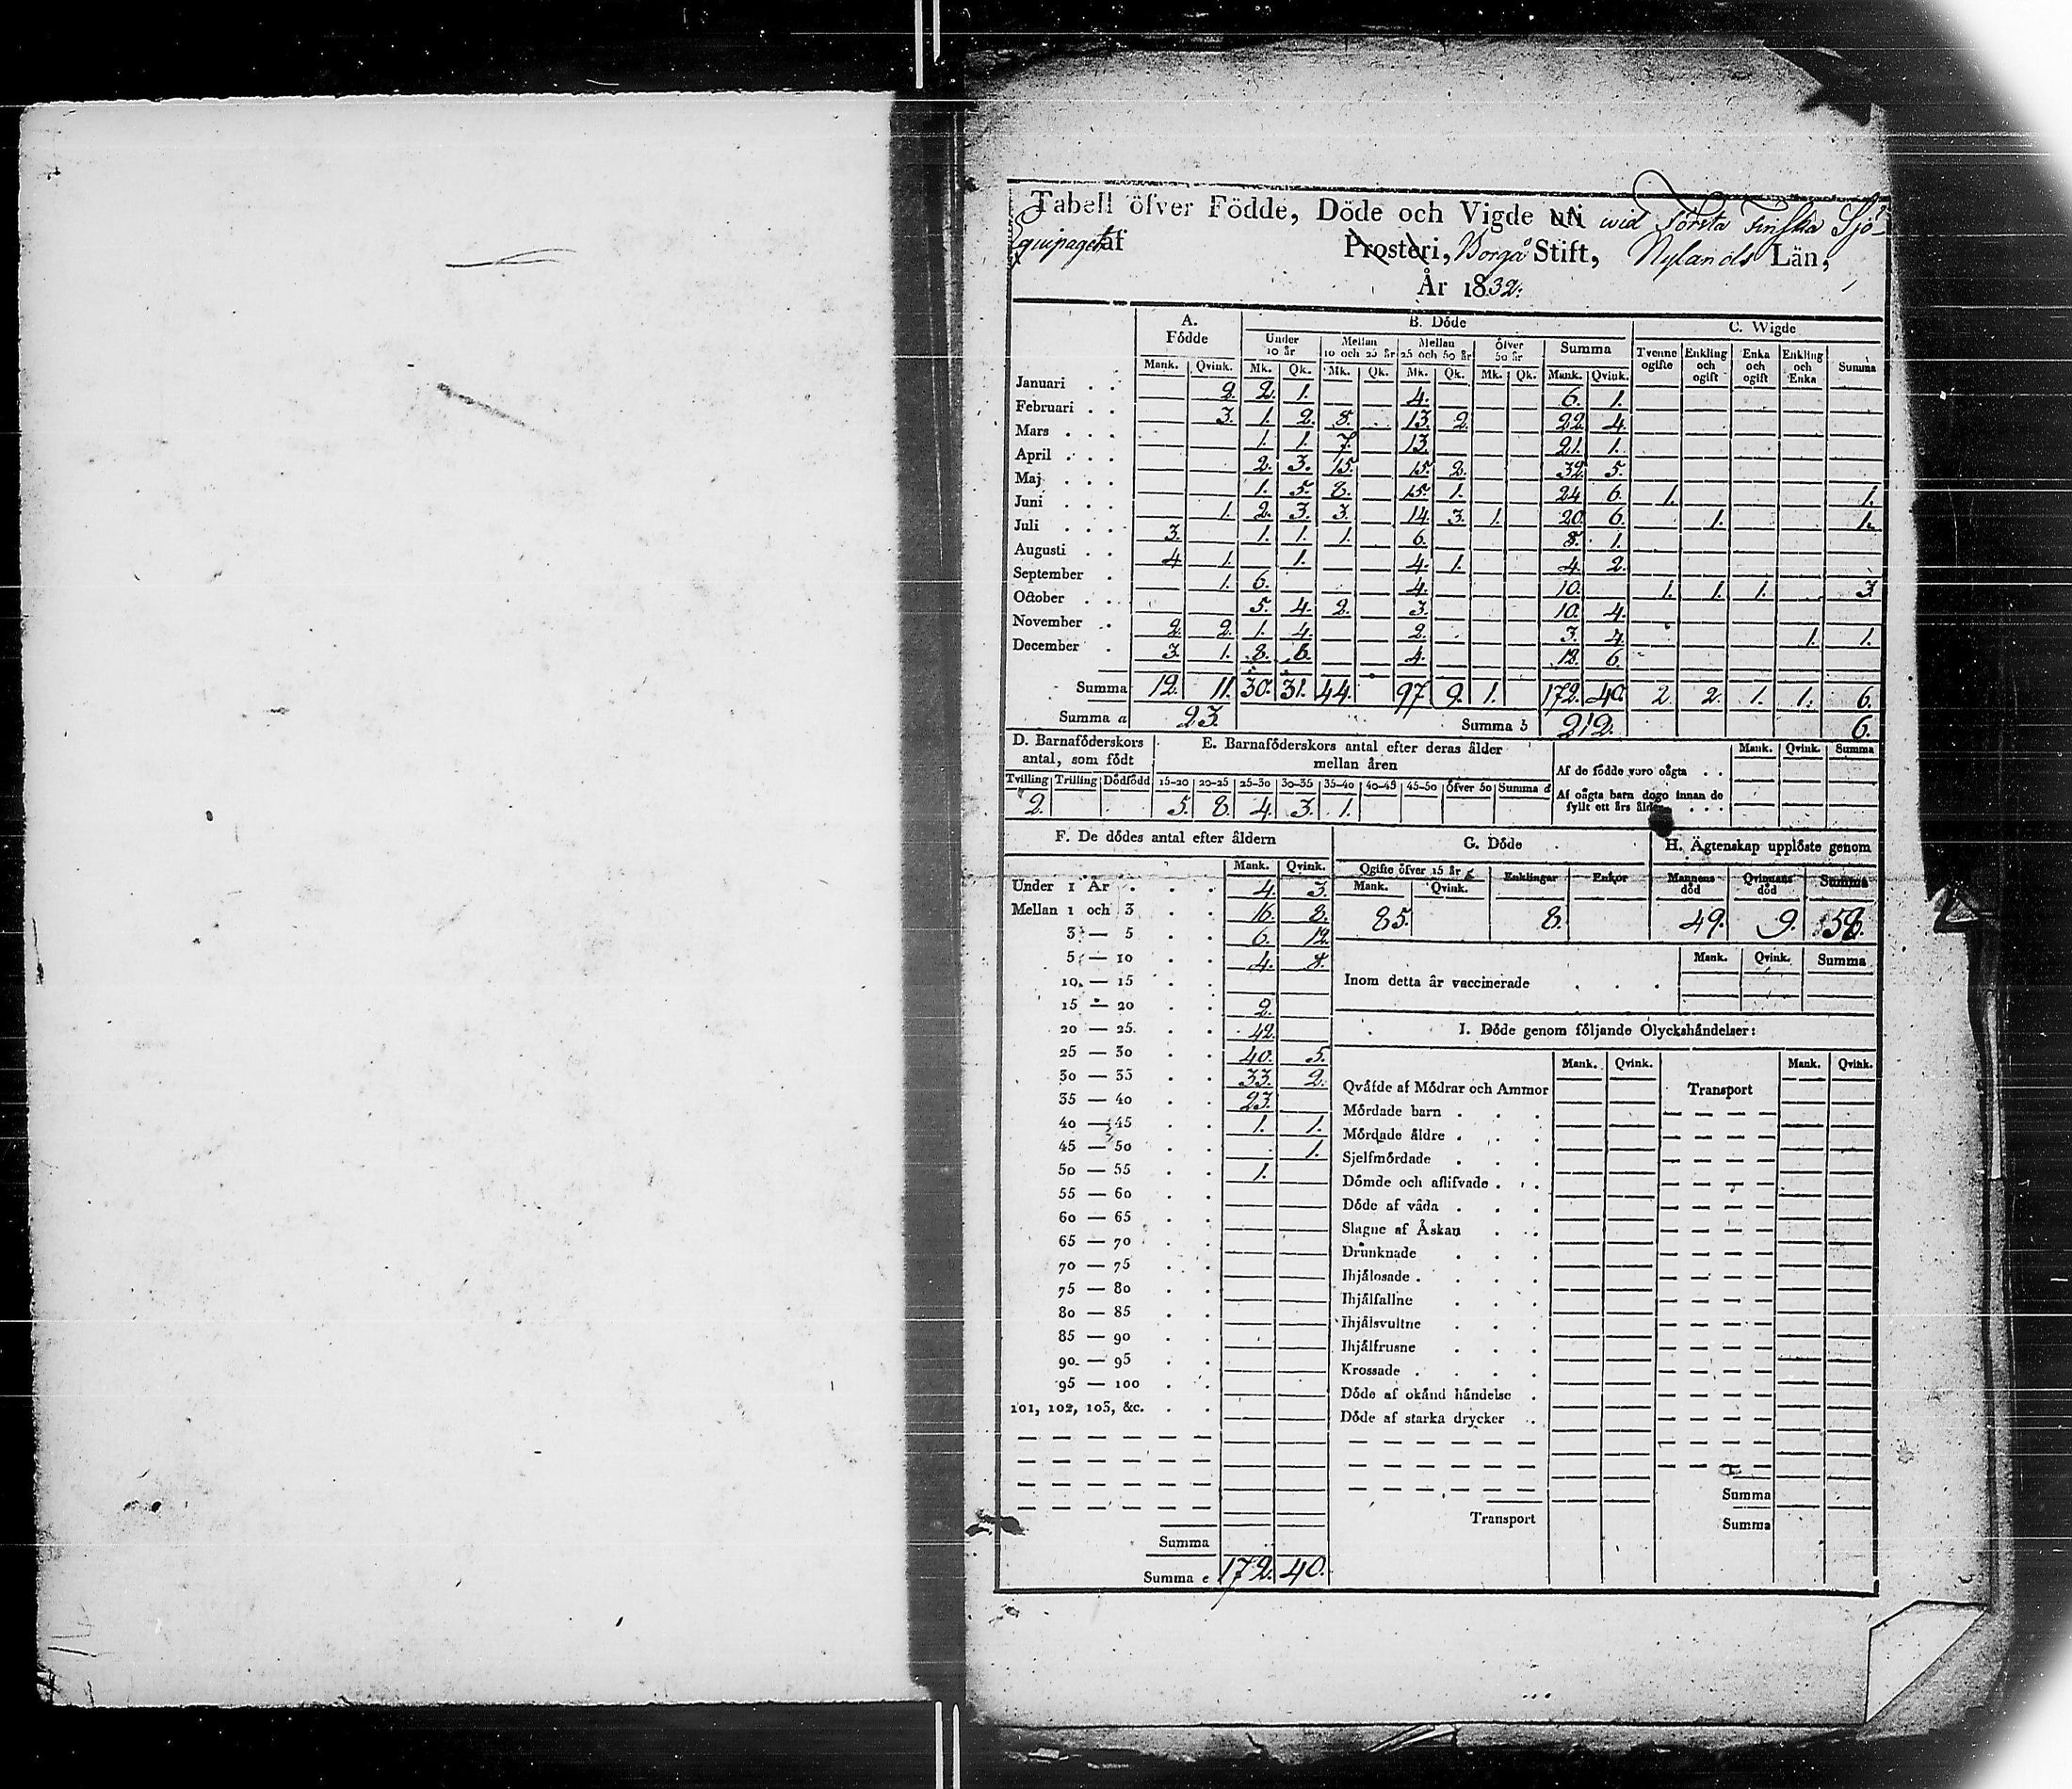 Tabell öfver Födde, Döde och Vigde uti wid Första Finska Sjö-
Equipaget af Prosteri, Borgå Stift, Nylands Län,
År 1832.
A. Födde B. Döde C. Wigde
Under 10 år Mellan 10 och 25 år Mellan 25 och 50 år öfver 50 år Summa Tvenne ogifte Enkling och ogift Enka och ogift Enkling och Enka Summa
Mank. Qvink. Mk. Qk. Mk. Qk. Mk. Qk. Mk. Qk. Mank. Qvink.
Januari . . 2. 2. 1. 4. 6. 1.
Februari . . 3. 1. 2. 8. 13. 2. 22. 4.
Mars . . . 1. 1. 7. 13. 21. 1.
April . . . 2. 3. 15. 15. 2. 32. 5.
Maj . . . 1. 5. 8. 15. 1. 24 6. 1. 1.
Juni . . . 1. 2. 3. 3. 14. 3. 1. 20. 6. 1. 1.
Juli . . . 3. 1. 1. 1. 6. 8. 1.
Augusti . . 4 1. 1. 4. 1. 4. 2.
September . 1. 6. 4. 10. 1. 1. 1. 3.
October . . 5. 4. 2. 3. 10. 4.
November . 2. 2. 1. 4. 2. 3. 4. 1. 1.
December . 3. 1. 8. 6. 4. 12. 6.
Summa 12. 11. 30. 31. 44. 97. 9. 1. 172. 40. 2 2. 1. 1. 6.
Summa a 23. Summa b 212. 6.
D. Barnaföderskors antal, som födt E. Barnaföderskors antal efter deras ålder mellan åren Mank. Qvink. Summa
Af de födde voro oägta . .
Tvilling Trilling Dödfödd 15-20 20-25 25-30 30-35 35-40 40-45 45-50 Öfver 50 Summa d
Af oägta barn dogo innan de fyllt ett års ålder . . .
2. 5. 8. 4. 3. 1.
F. De dödes antal efter åldern G. Döde H. Ägtenskap upplöste genom
Mank. Qvink. Ogifte öfver 15 år Enklingar Enkor Mannens död Qvinnans död Summa
Mank. Qvink.
85. 8. 49. 9. 58.
Under 1 År . . . 4. 3.
Mellan 1 och 3 . . 16. 8.
3 — 5 . . 6. 12.
5 — 10 . . 4. 8.
10 — 15 . .
15 — 20 . . 2.
20 — 25 . . 42.
25 — 30 . . 40. 5.
30 — 35 . . 33. 2.
35 — 40 . . 23.
40 — 45 . . 1. 1.
45 — 50 . . 1.
50 — 55 . . 1.
55 — 60 . .
60 — 65 . .
65 — 70 . .
70 — 75 . .
75 — 80 . .
80 — 85 . .
85 — 90 . .
90 — 95 . .
95 — 100 . .
101, 102, 103, &c. . .
Summa
Summa e 172. 40.
Mank. Qvink. Summa
Inom detta år vaccinerade . . .
I. Döde genom följande Olyckshändelser:
Mank. Qvink. Mank. Qvink.
Qväfde af Mödrar och Ammor Transport
Mördade barn . . .
Mördade äldre . . .
Sjelfmördade . . .
Dömde och aflifvade . . .
Döde af våda . . .
Slagne af Åskan . .
Drunknade . . .
Ihjälosade . . . .
Ihjälfallne . . .
Ihjälsvultne . . .
Ihjälfrusne . . .
Krossade . . . .
Döde af okänd händelse .
Döde af starka drycker .
Summa
Transport Summa